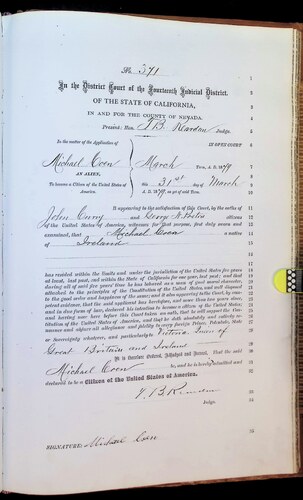 No 371
In the District Court of the Fourteenth Judicial District,
OF THE STATE OF CALIFORNIA,
IN AND FOR THE COUNTY OF NEVADA.
Present: Hon. T B Reardan Judge.
In the matter of the Application of
IN OPEN COURT
Michael Coen
AN ALIEN,
To become a Citizen of the United States of
America.
March Term, A. D. 1879
this 31st day of March
A. D. 1879, as yet of said Term.
It appearing to the satisfaction of this Court, by the oaths of
John Curry and George citizens
of the United States of America, witnesses for that purpose, first duly sworn and
examined, that Michael Coen a native
of Ireland
has resided within the limits and under the jurisdiction of the United States five years
at least, last past, and within the State of California for one year, last past; and that
during all of said five years' time he has behaved as a man of good moral character,
attached to the principles of the Constitution of the United States, and well disposed
to the good order and happiness of the same; and it also appearing to the Court, by competent
evidence, that the said applicant has heretofore, and more than two years since,
and in due form of law, declared his intention to become a citizen of the United States;
and having now here before this Court taken an oath, that he will support the Constitution
of the United States of America, and that he doth absolutely and entirely renounce
and abjure all allegiance and fidelity to every foreign Prince, Potentate, State
or Sovereignty whatever, and particularly to Victoria Queen of
Great Britain and Ireland
It is therefore Ordered, Adjudged and Decreed, That the said
Michael Coen be, and he is hereby admitted and
declared to be a Citizen of the United States of America.
T. B. Reardan
Judge.
SIGNATURE: Michael Coen